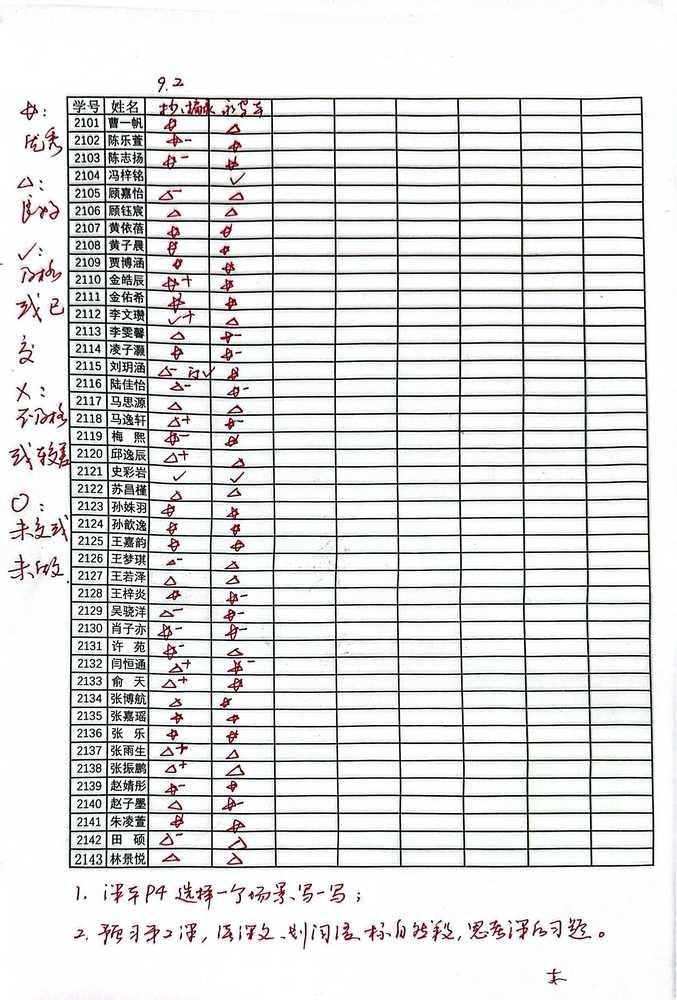 9.2
学号 姓名 抄、摘录 永写车
☆:
优秀
△:
良好
✓:
及格
或已
交
×:
不及格
或较差
○:
未交或
未改
2101 曹一帆 ☆ △
2102 陈乐萱 ☆- ☆
2103 陈志扬 ☆- ☆
2104 冯梓铭 ✓
2105 顾嘉怡 △- △
2106 顾钰宸 △ △
2107 黄依蓓 ☆ ☆
2108 黄子晨 ☆ ☆
2109 贾博涵 ☆ ☆
2110 金皓辰 ☆+ ☆
2111 金佑希 ☆ ☆
2112 李文瓒 ✓+ △
2113 李雯馨 △ ☆-
2114 凌子灏 ☆ ☆-
2115 刘玥涵 △- ✓ ☆
2116 陆佳怡 △- ☆-
2117 马思源 △ △
2118 马逸轩 △+ ☆-
2119 梅 熙 ☆- ☆
2120 邱逸辰 △+ △
2121 史彩岩 ✓ ✓
2122 苏昌槿 △ △
2123 孙姝羽 ☆ ☆
2124 孙歆逸 ☆ ☆
2125 王嘉韵 ☆ ☆
2126 王梦琪 △- △
2127 王若泽 △ △
2128 王梓炎 ☆ ☆-
2129 吴骁洋 △- ☆-
2130 肖子亦 ☆- ☆-
2131 许 苑 ☆- △
2132 闫恒通 △+ ☆-
2133 俞 天 △+ ☆
2134 张博航 △ ☆
2135 张嘉瑶 ☆ ☆
2136 张 乐 ☆ ☆
2137 张雨生 △+ △
2138 张振鹏 △+ △
2139 赵婧彤 ☆- ☆
2140 赵子墨 △ ☆-
2141 朱凌萱 ☆ ☆
2142 田 硕 △- △
2143 林景悦 △ △
1. 课本P4 选择一个场景、写一写;
2. 预习第2课,读课文、划词语、标自然段,思考课后习题。